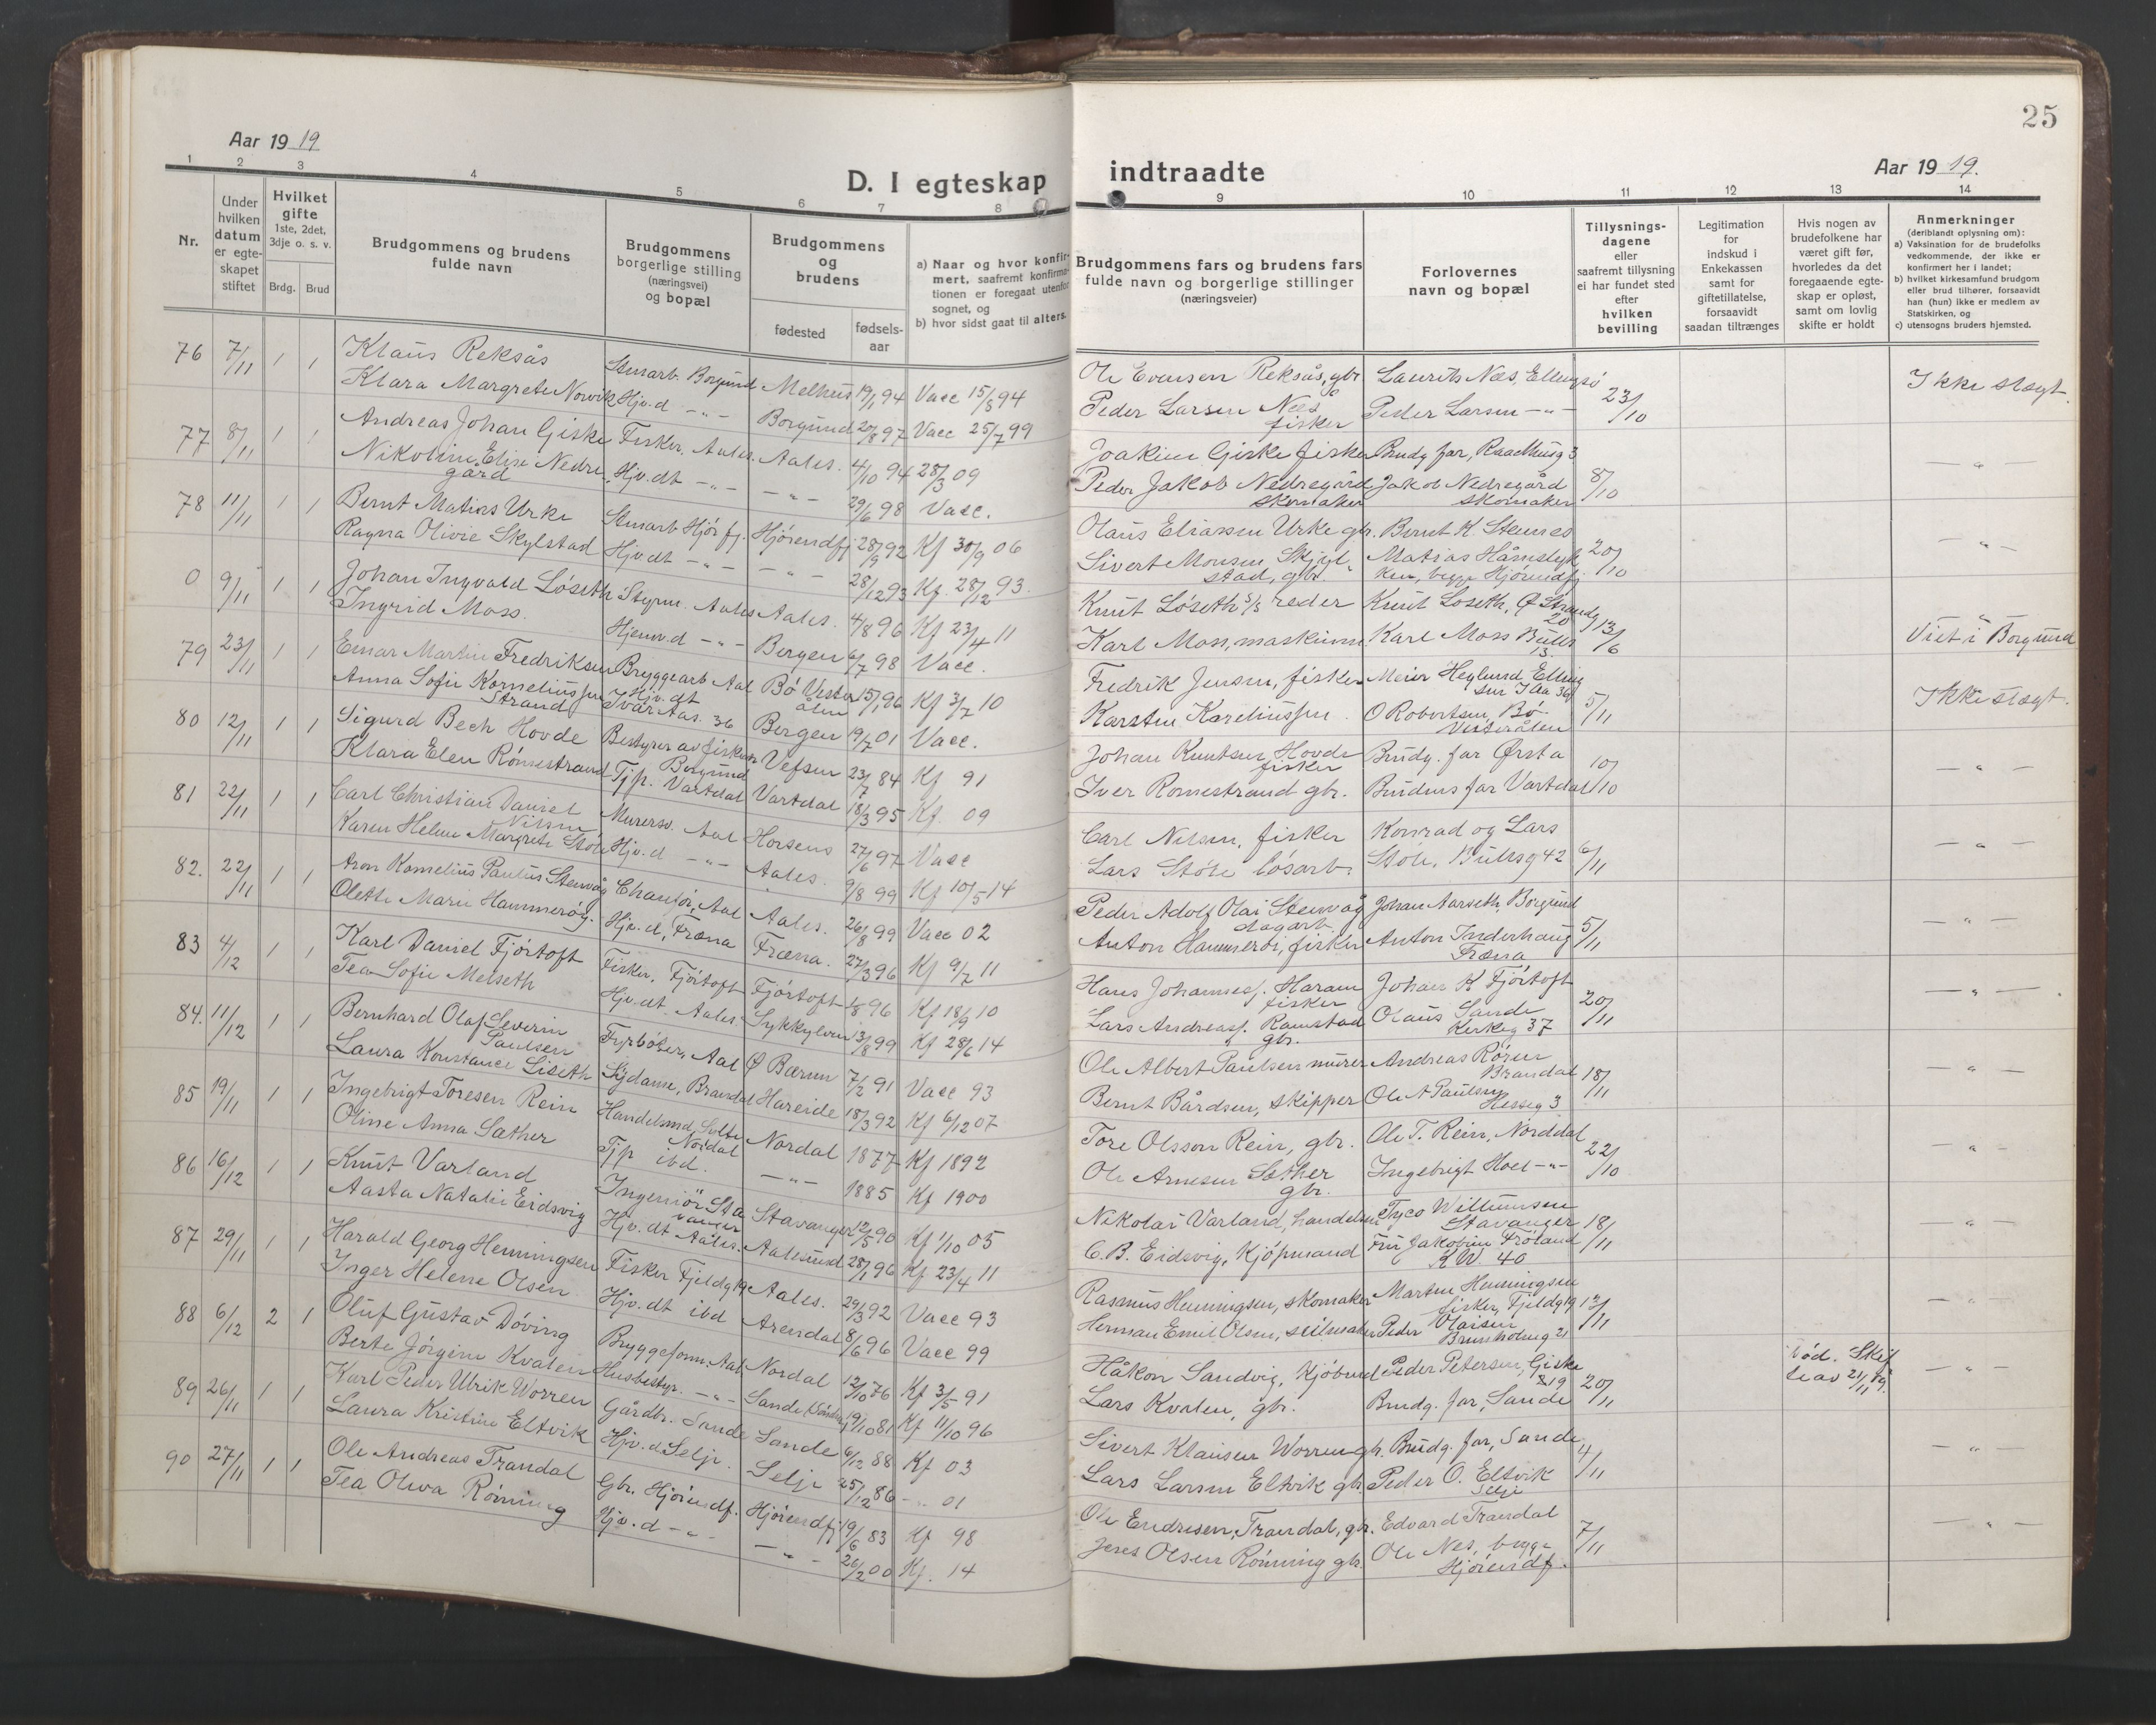 Aar 1919
D. I egteskap
1 2 3 4 5 6 7 8
Nr.
Under hvilken datum er egteskapet stiftet
Hvilket gifte 1ste, 2det, 3dje o. s. v.
Brdg. Brud
Brudgommens og brudens fulde navn
Brudgommens borgerlige stilling (næringsvei) og bopæl
Brudgommens og brudens
fødested fødsels-aar
a) Naar og hvor konfirmert, saafremt konfirmationen er foregaat utenfor sognet, og
b) hvor sidst gaat til alters.
76 7/11 1 1 Klaus Reksås Stuarb. Borgund Melhus 19/1 94 Vacc 15/8 94
Klara Margrete Norvik Hjv.d -"- Borgund 20/8 97 Vacc 25/7 99
77 8/11 1 1 Andreas Johan Giske Fisker, Aales. Aales. 4/10 94 28/3 09
Nikoline Elise Nedre
gård Hjv.dt -"- -"- 29/6 98 Vacc.
78 11/11 1 1 Bernt Matias Urke Stuarb Hjørfj. Hjørendfj 28/9 92 Kf 30/9 06
Ragna Olivie Skylstad Hjv.dt -"- -"- 28/12 93 Kf. 28/12 93.
0 9/11 1 1 Johan Ingvald Løseth Styrm. Aales Aales. 4/8 96 Kf 23/4 11
Ingrid Moss. Hjemv.d -"- Bergen 6/7 98 Vacc.
79 23/11 1 1 Einar Martin Fredriksen Bryggearb Aal Bø Vester
ålen 15/1 96 Kf 3/7 10
Anna Sofie Korneliussen
Strand Hjv.dt
Ivar Aas. 36 Bergen 19/7 01 Vacc.
80 12/11 1 1 Sigurd Bech Hovde Bestyrer av fisker
Borgund Vefsen 23/7 84 Kf 91
Klara Elen Rømestrand Tjp. Vartdal Vartdal 18/3 95 Kf. 09
81 22/11 1 1 Carl Christian Daniel
Nilsen Murersv. Aal Horsens 27/6 97 Vacc
Karen Helene Margrete Støle Hjv.d -"- Aales. 9/8 99 Kf 10/5 14
82. 22/11 1 1 Aron Kornelius Paulus Stenvåg Chaufør, Aal Aales. 26/8 99 Vacc 02
Olette Marie Hammerøy. Hjv.d, Fræna Fræna. 27/3 96 Kf 9/7 11
83 4/12 1 1 Karl Daniel Fjørtoft Fisker, Fjørtoft Fjørtoft 1/8 96 Kf 18/9 10
Tea Sofie Melseth Hjv.dt. Aales Sykkylven 13/8 99 Kf 28/6 14
84. 11/12 1 1 Bernhard Olaf Severin
Paulsen Fyrbøter, Aal Ø Bærum 7/2 91 Vacc 93
Laura Konstance Liseth Sydame, Brandal Hareide 18/3 92 Kf 6/12 07
85 19/11 1 1 Ingebrigt Toresen Rein Handelsmd, Sylte
Nordal Nordal 1877 Kf 1892
Oline Anna Sæther Tjp ibd. -"- 1885 Kf 1900
86 16/12 1 1 Knut Varland Ingeniør Sta
vanger Stavanger 12/5 90 Kf 1/10 05
Aasta Natalie Eidsvig Hjv.dt Aales. Aalesund 28/1 96 Kf 23/4 11
87 29/11 1 1 Harald Georg Henningsen Fisker Fjeldg 19 Aales. 29/3 92 Vacc 93
Inger Helene Olsen Hjv.dt ibd Arendal 8/6 96 Vacc 99
88 6/12 2 1 Oluf Gustav Døving Bryggeform. Aal Nordal 12/10 76 Kf 3/5 91
Berte Jørgine Kvalen Husbestyr. -"- Sande 19/10 81 Kf 11/10 96
89 26/11 1 1 Karl Peder Ulrik Worren Gårdbr. Sande Sande 6/12 88 Kf 03
Laura Kristine Eltvik Hjv.d. Selje. Selje 25/12 86 -"- 01
90 27/11 1 1 Ole Andreas Trandal Gbr. Hjørendf. Hjørendfj 19/6 83 Kf 98
Tea Oliva Rønning Hjv.d -"- -"- 26/2 00 Kf. 14
25
indtraadte
Aar 1919.
9 10 11 12 13 14
Brudgommens fars og brudens fars fulde navn og borgerlige stillinger (næringsveier)
Forlovernes navn og bopæl
Tillysningsdagene eller saafremt tillysning ei har fundet sted efter hvilken bevilling
Legitimation for indskud i Enkekassen samt for giftetillatelse, forsaavidt saadan tiltrænges
Hvis nogen av brudefolkene har været gift før, hvorledes da det foregaaende egteskap er opløst, samt om lovlig skifte er holdt
Anmerkninger (deriblandt oplysning om):
a) Vaksination for de brudefolks vedkommende, der ikke er konfirmert her i landet;
b) hvilket kirkesamfund brudgom eller brud tilhører, forsaavidt han (hun) ikke er medlem av Statskirken, og
c) utensogns bruders hjemsted.
Ole Evensen Reksås, gbr Laurits Næs, Ellingsø 23/10 Ikke slegt.
Peder Larsen Næs
fisker Peder Larsen -"-
Joakim Giske fisker Brudg far, Raadhusg 3 8/10 -"-
Peder Jakob Nedregård
skomaker Jakob Nedregård
skomaker
Olaus Eliassen Urke gbr. Bernt K. Stennes 20/10 -"-
Sivert Monsen Skjyl-
stad, gbr. Matias Håmslyk
ken, begge Hjørendfj
Knut Løseth s/s reder Knut Løseth, Ø Strandg
20 13/6 Viet i Borgund
Karl Moss, maskinm. Karl Moss Bulls
13.
Fredrik Jensen, fisker Meier Heglund Elling
sen I Aa 36 5/11 Ikke slegt.
Karsten Kareliussen. O Robertsen, Bø
Vesterålen
Johan Knutsen Hovde
fisker Brudg. far Ørsta 10/10 -"-
Iver Romestrand gbr. Brudens far Vartdal
Carl Nilsen, fisker Konrad og Lars 6/11 -"-
Lars Støle løsarb. Støle, Bullsg 42
Peder Adolf Olai Stenvåg
dagarb. Johan Aarseth, Borgund 5/11 -"-
Anton Hammerøi, fisker Anton Inderhaug
Fræna
Hans Johannesf. Haram
fisker Johan K Fjørtoft 20/11 -"-
Lars Andreasf. Ramstad
gbr. Olaus Sande
Kerkeg 37
Ole Albert Paulsen murer Andreas Røren
Brandal 18/11 -"-
Bernt Bårdsen, skipper Ole A Paulsen
Hesseg 3
Tore Olsson Rein, gbr. Ole T. Rein, Norddal 22/10 "
Ole Arnesen Sæther
gbr. Ingebrigt Hoel -"-
Nikolai Varland, handelsm Tyco Willumsen
Stavanger 18/11 -"-
C. B. Eidsvig, Kjøpmand Fru Jakobine Frøland
K W. 40
Rasmus Henningsen, skomaker Martin Henningsen
fisker, Fjeldg 19 13/11 -"-
Herman Emil Olsen, seilmaker Peder Olaisen
Brunholmg 21
Håkon Sandvig, Kjøbmd Peder Petersen, Giske
819 20/11 Død. Skif
te av 21/11 19. -"-
Lars Kvalen, gbr. Brudg. far, Sande
Sivert Klausen Worren gb. Brudg. far, Sande 4/11 -"-
Lars Larsen Eltvik gb. Peder O. Eltvik
Selje
Ole Endresen, Trandal, gbr. Edvard Trandal 7/11 -"-
Jens Olsen Rønning gbr. Ole Nes, begge
Hjørendf.